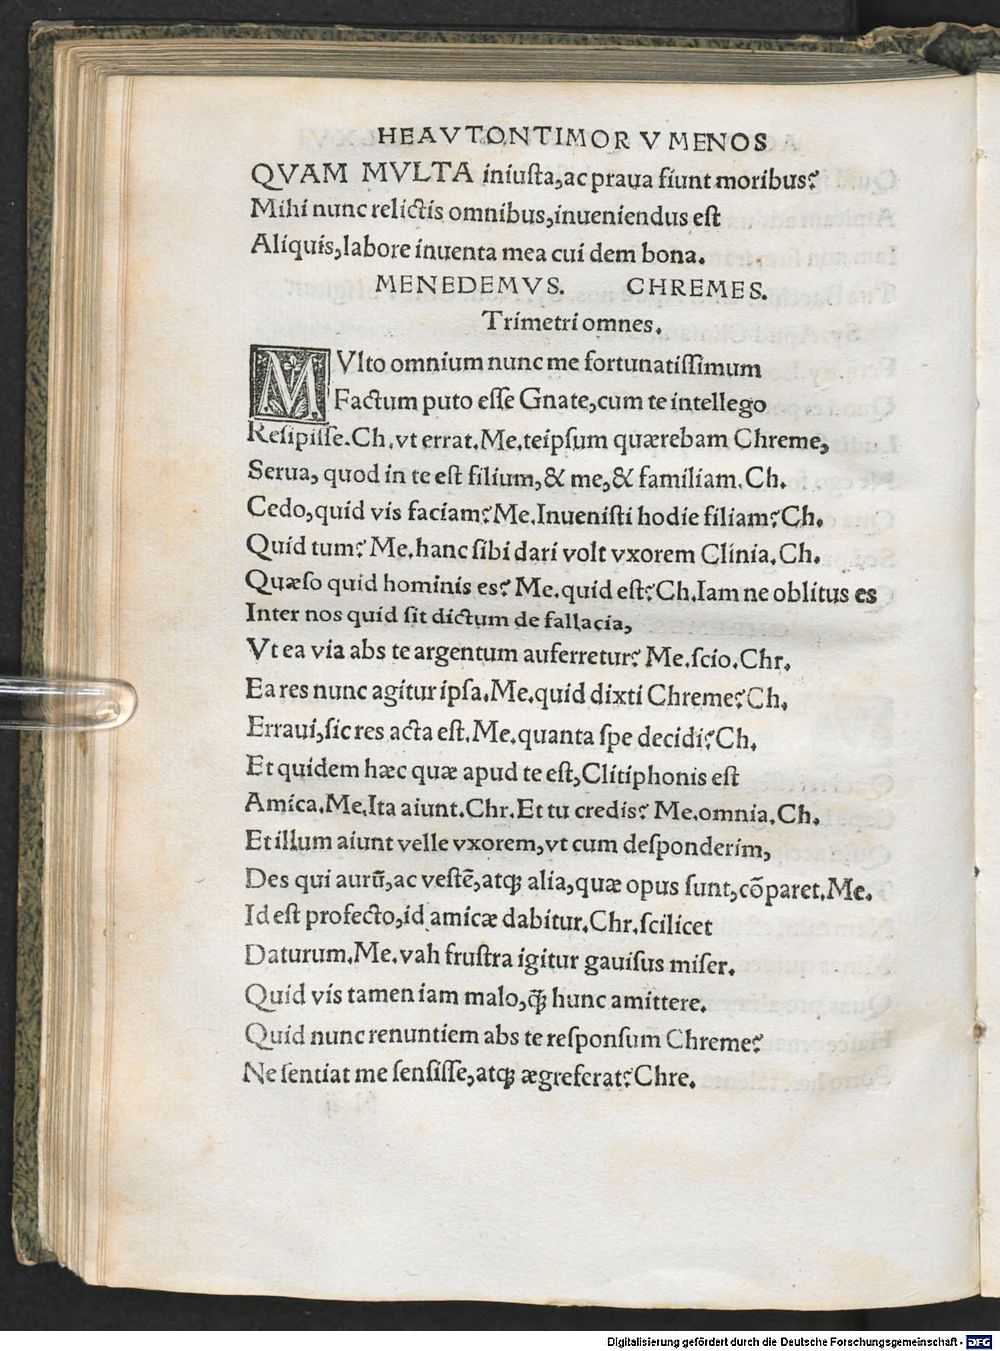 HEAVTONTIMOR V MENOS
QVAM MVLTA iniuſta, ac praua fiunt moribus?
Mihi nunc relictis omnibus, inueniendus eſt
Aliquis, labore inuenta mea cui dem bona.
MENEDEMVS. CHREMES.
Trimetri omnes.
MVlto omnium nunc me fortunatiſſimum
Factum puto eſſe Gnate, cum te intellego
Reſipiſſe. Ch. vt errat. Me. teipſum quærebam Chreme,
Serua, quod in te eſt filium, & me, & familiam. Ch.
Cedo, quid vis faciam? Me. Inueniſti hodie filiam? Ch.
Quid tum? Me. hanc ſibi dari volt vxorem Clinia. Ch.
Quæſo quid hominis es? Me. quid eſt? Ch. Iam ne oblitus es
Inter nos quid ſit dictum de fallacia,
Vt ea via abs te argentum auferretur? Me. ſcio. Chr.
Ea res nunc agitur ipſa. Me. quid dixti Chreme? Ch.
Erraui, ſic res acta eſt. Me. quanta ſpe decidi? Ch.
Et quidem hæc quæ apud te eſt, Clitiphonis eſt
Amica. Me. Ita aiunt. Chr. Et tu credis? Me. omnia. Ch.
Et illum aiunt velle vxorem, vt cum deſponderim,
Des qui aurū, ac veſtē, atq; alia, quæ opus ſunt, cōparet. Me.
Id eſt profecto, id amicæ dabitur. Chr. ſcilicet
Daturum. Me. vah fruſtra igitur gauiſus miſer.
Quid vis tamen iam malo, q̄; hunc amittere.
Quid nunc renuntiem abs te reſponſum Chreme?
Ne ſentiat me ſenſiſſe, atq; ægreferat? Chre.
Digitalisierung gefördert durch die Deutsche Forschungsgemeinschaft - DFG